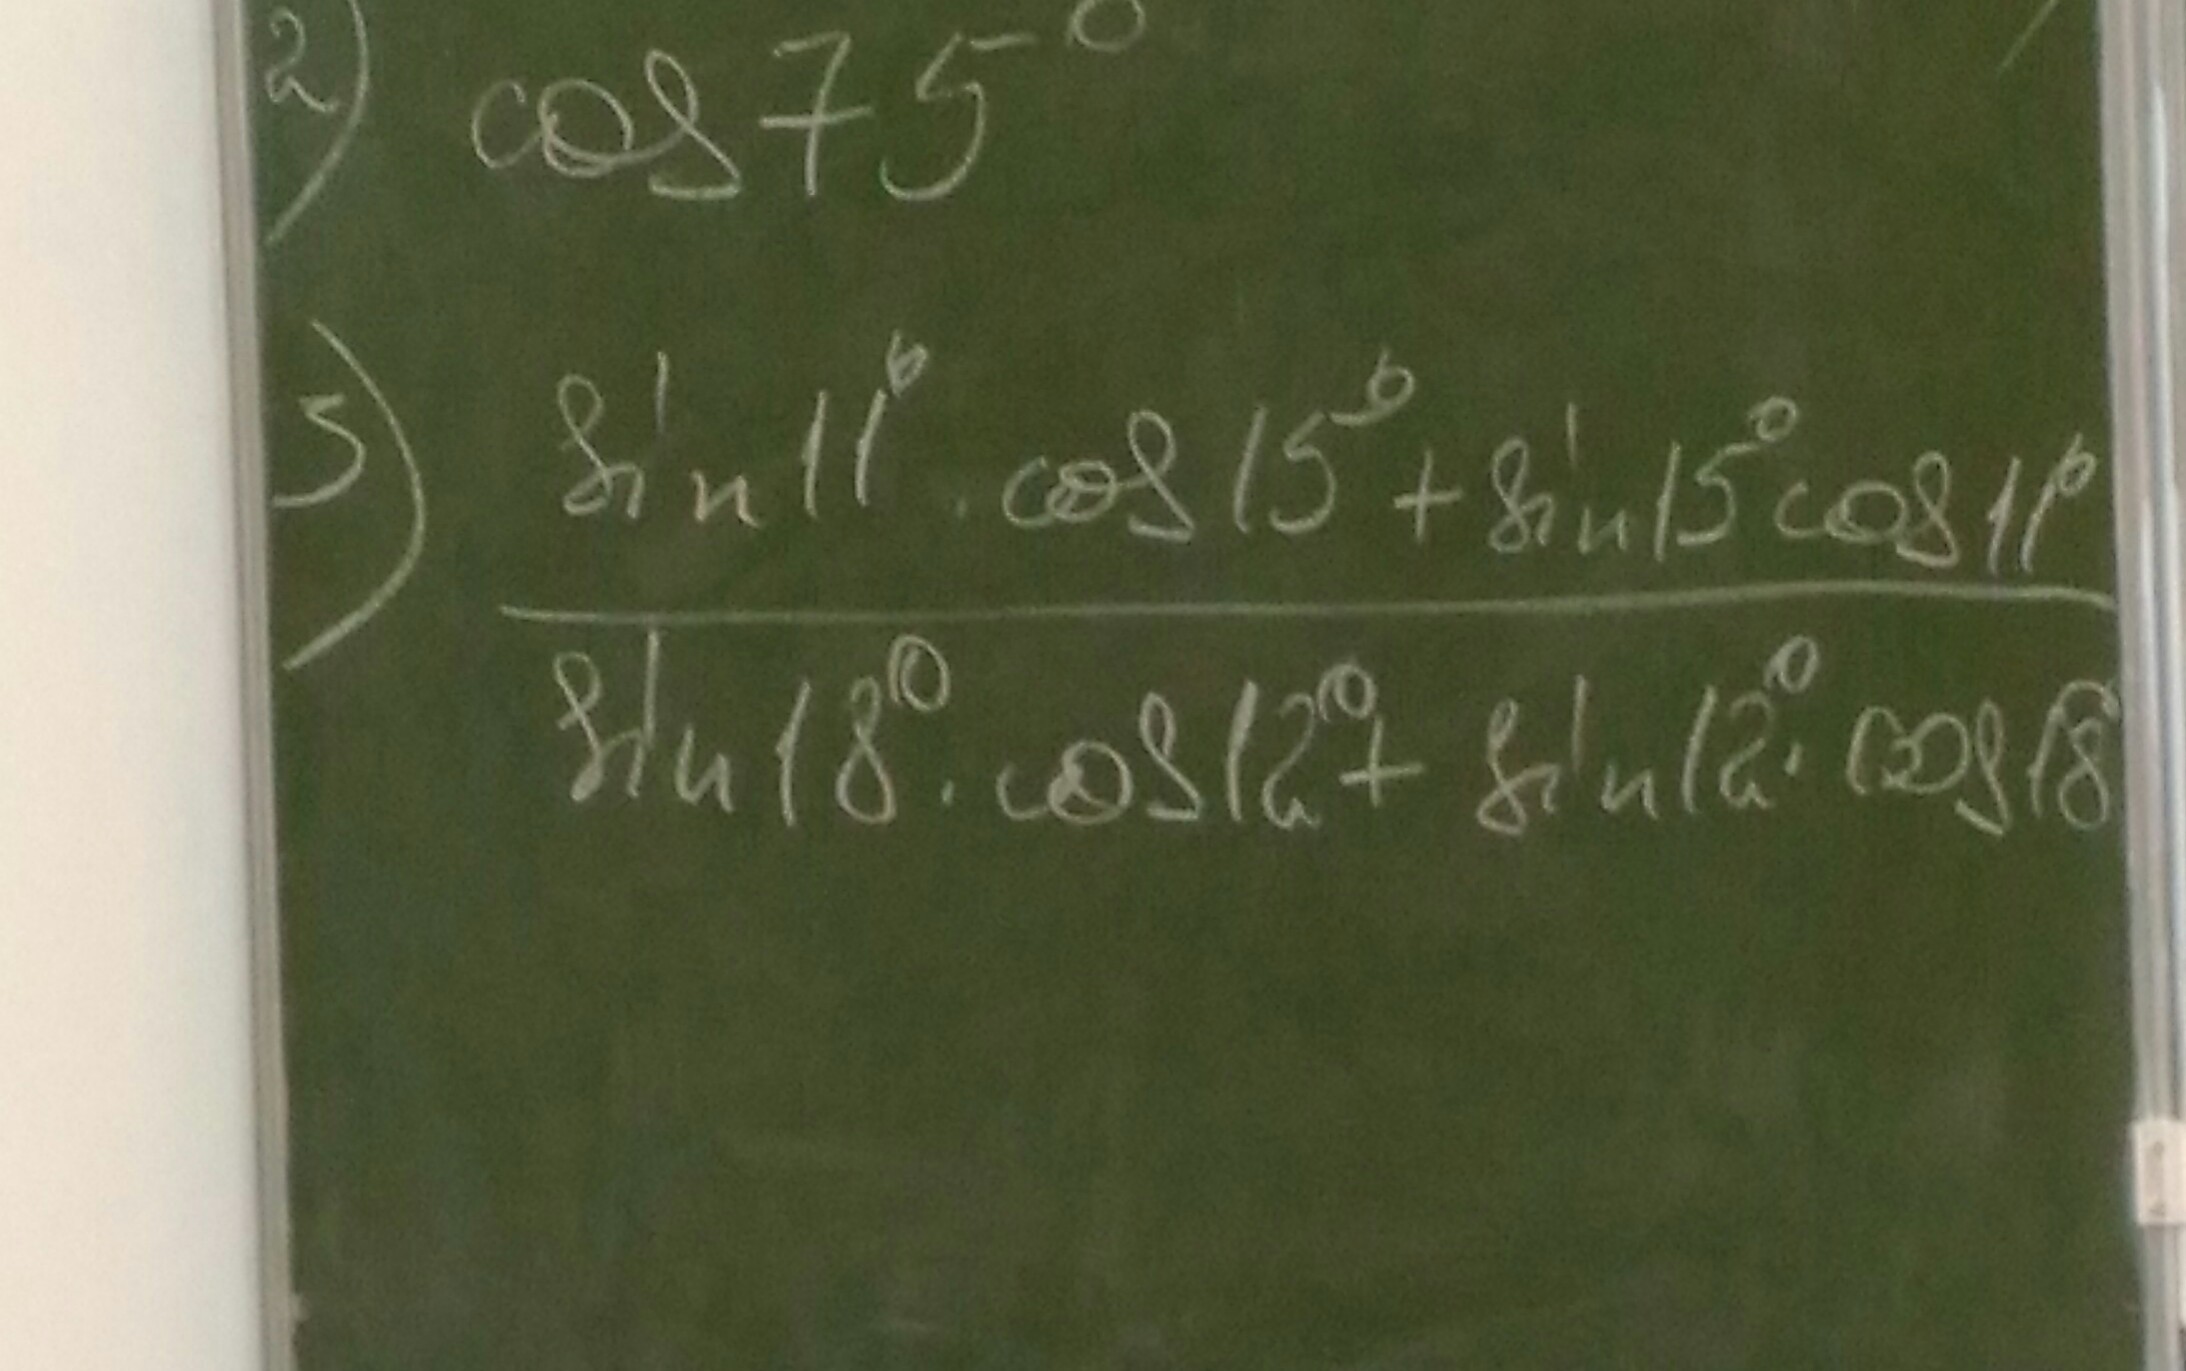 2) cos 75°
3) sin 11° · cos 15° + sin 15° cos 11°
sin 18° · cos 12° + sin 12° · cos 18°